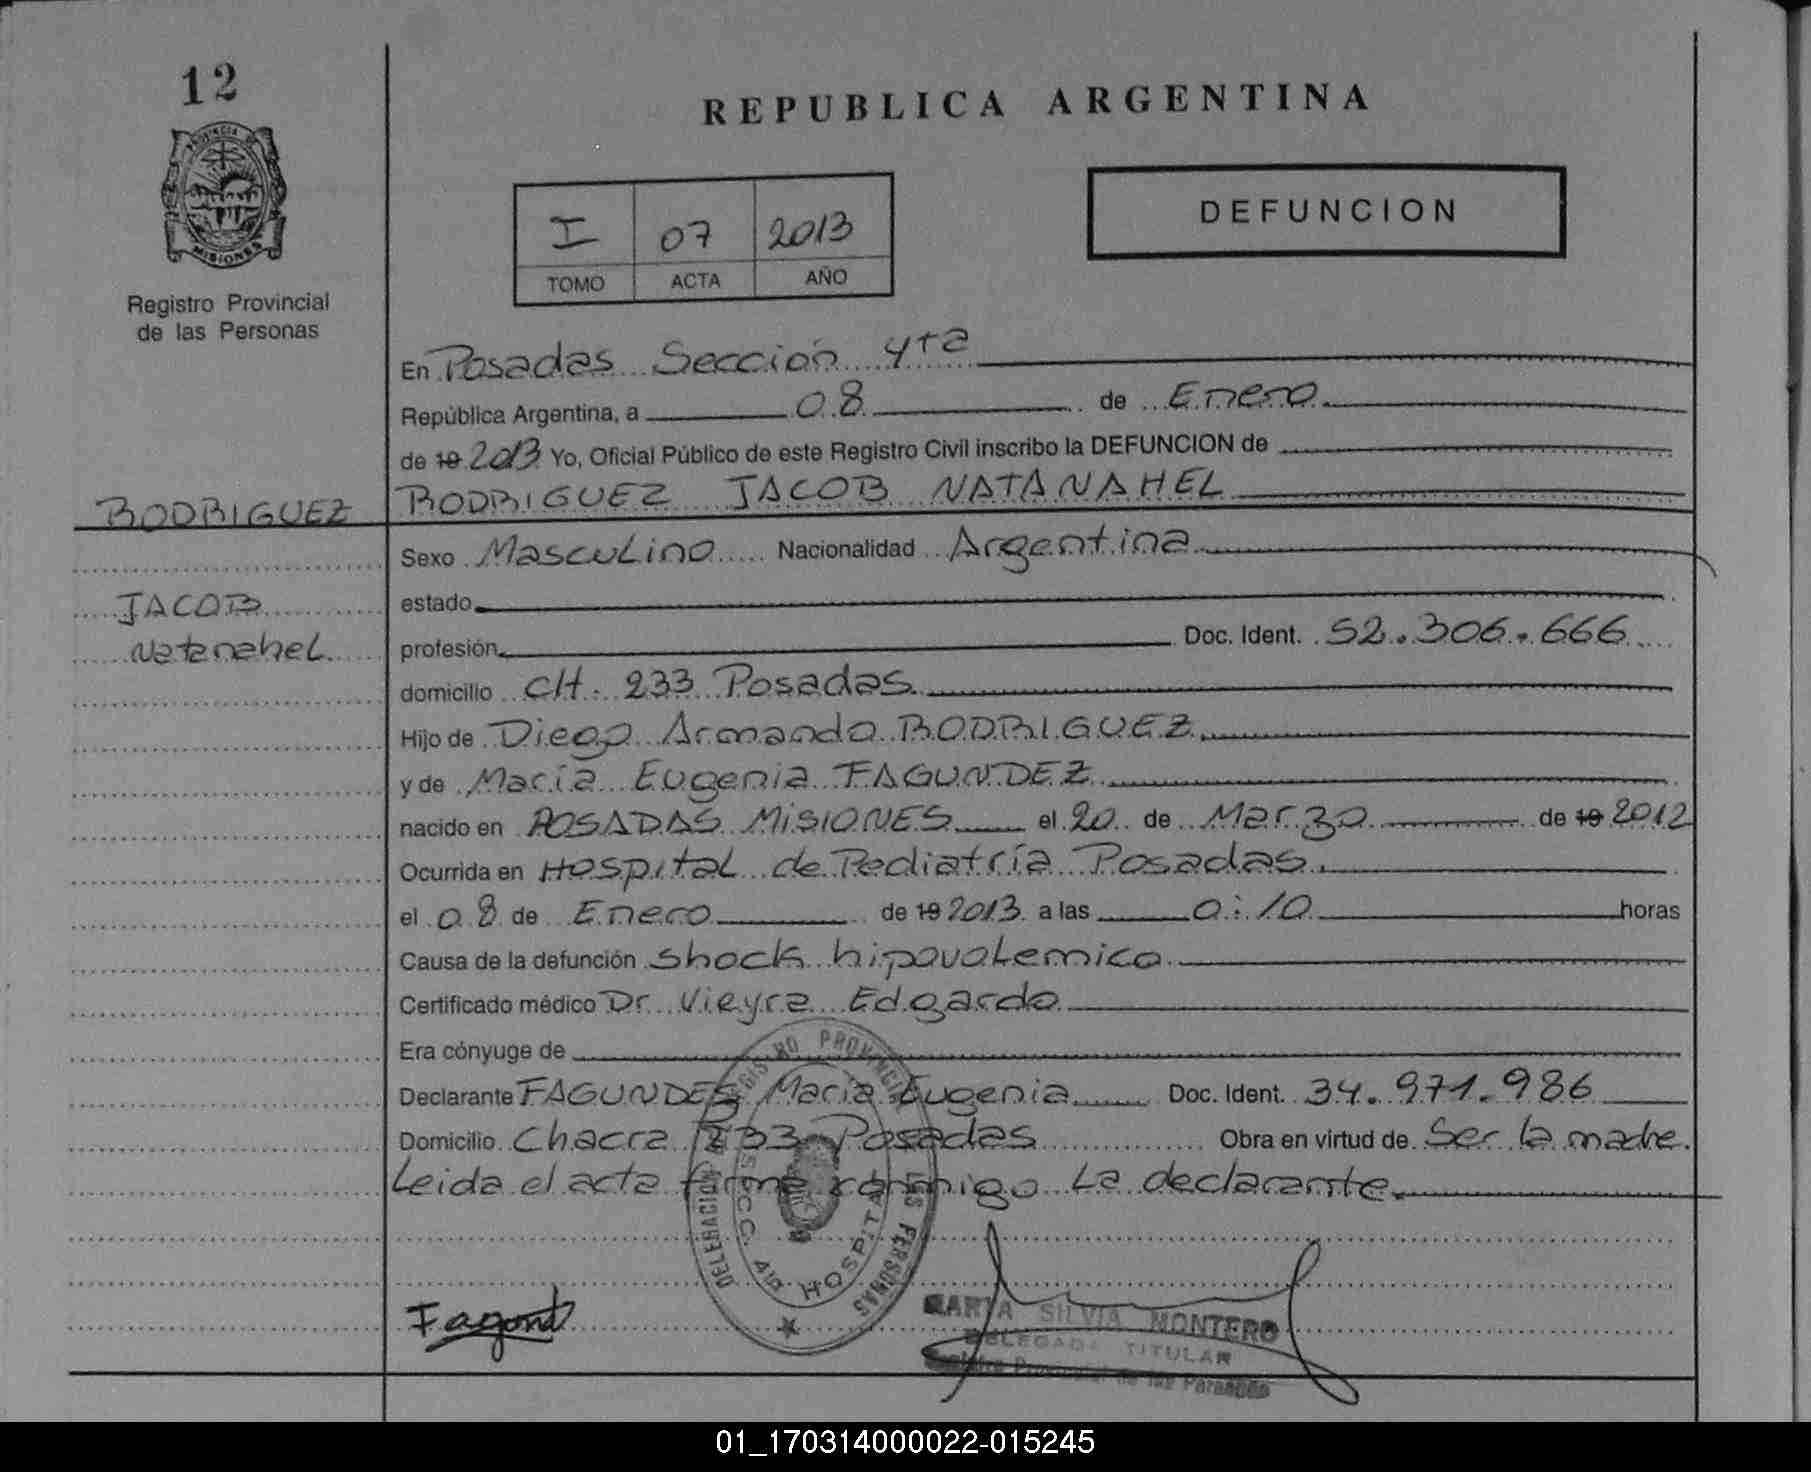 12
PROVINCIA DE
MISIONES
Registro Provincial
de las Personas
REPUBLICA ARGENTINA
I 07 2013
TOMO ACTA AÑO
DEFUNCION
En Posadas Sección 4ta
República Argentina, a 08 de Enero
de 19 2013 Yo, Oficial Público de este Registro Civil inscribo la DEFUNCION de
RODRIGUEZ JACOB NATANAHEL
RODRIGUEZ
JACOB
Natanahel
Sexo Masculino Nacionalidad Argentina
estado
profesión Doc. Ident. 52.306.666
domicilio CH. 233 Posadas
Hijo de Diego Armando RODRIGUEZ
y de María Eugenia FAGUNDEZ
nacido en POSADAS MISIONES el 20 de Marzo de 19 2012
Ocurrida en Hospital de Pediatría Posadas
el 08 de Enero de 19 2013 a las 0:10 horas
Causa de la defunción shock hipovolemico
Certificado médico Dr. Vieyra Edgardo
Era cónyuge de
Declarante FAGUNDES María Eugenia Doc. Ident. 34.971.986
Domicilio Chacra 233 Posadas Obra en virtud de Ser la madre.
Leida el acta firma conmigo La declarante.
DELEGACION REGISTRO PROVINCIAL LAS PERSONAS
SECC. 4ta HOSPITAL
MARTA SILVIA MONTERO
DELEGADA TITULAR
Registro Provincial de las Personas
01_170314000022-015245